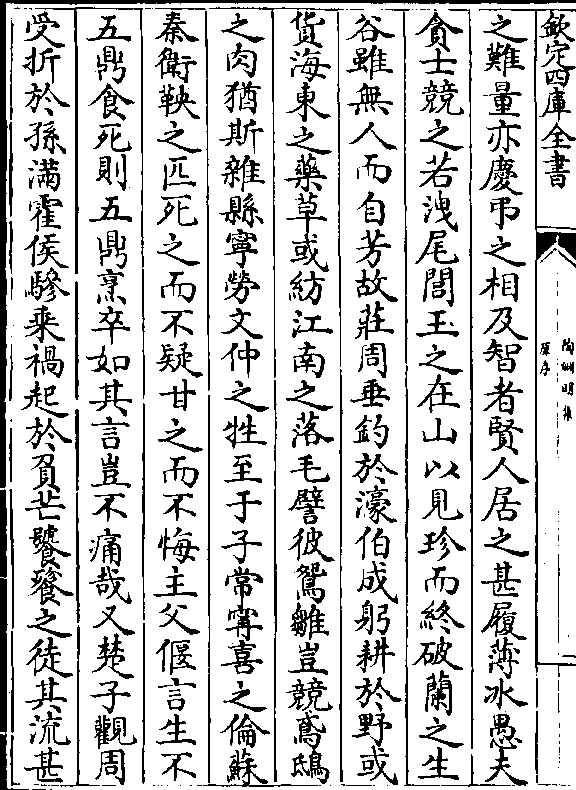 欽定四庫全書
陶淵明集
原序
之難量亦慶弔之相及智者賢人居之甚履薄冰愚夫
貪士競之若洩尾閭玉之在山以見珍而終破蘭之生
谷雖無人而自芳故莊周垂釣於濠伯成躬耕於野或
貨海東之藥草或紡江南之落毛譬彼鴛雛豈競鳶鴟
之肉猶斯雜縣寧勞文仲之牲至于子常寧喜之倫蘇
秦衛鞅之匹死之而不疑甘之而不悔主父偃言生不
五鼎食死則五鼎烹卒如其言豈不痛哉又楚子觀周
受折於孫滿霍侯驂乗禍起於負芒饕餮之徒其流甚